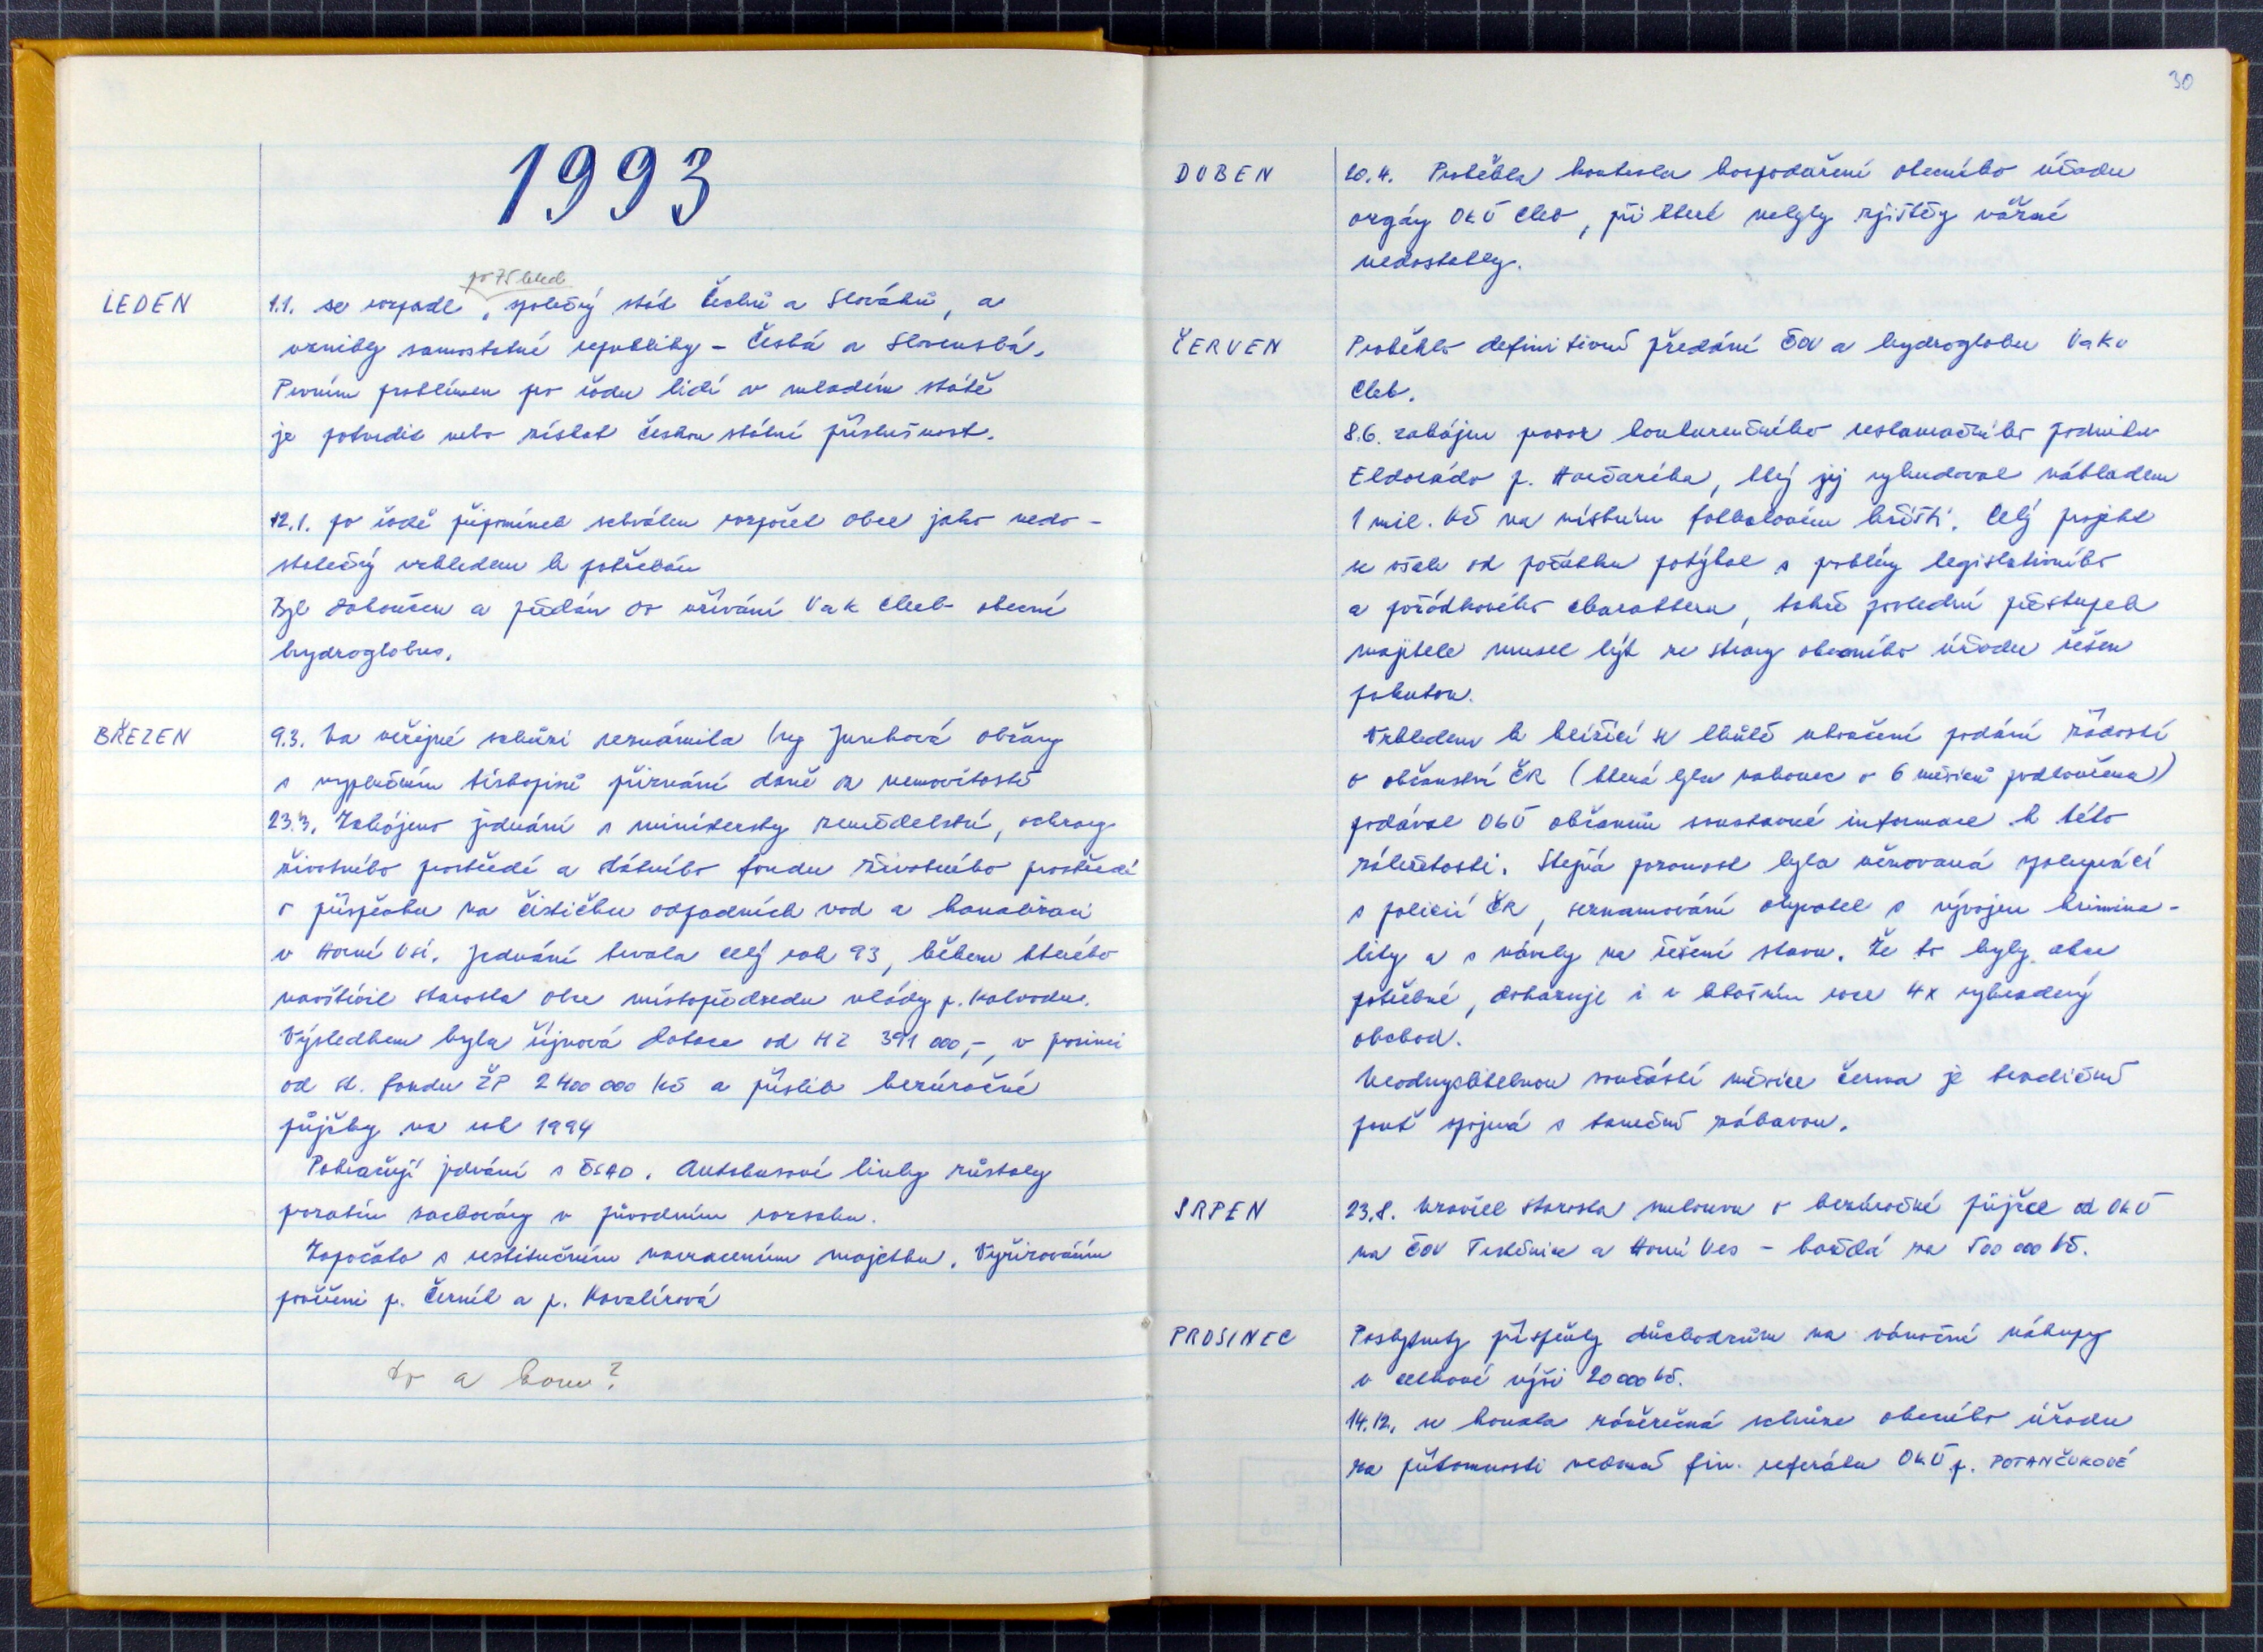 1993
po 75 letech
LEDEN
1.1. se rozpadl společný stát Čechů a Slováků, a
vznikly samostatné republiky - Česká a Slovenská.
Prvním problémem pro řadu lidí v mladém státě
je potvrdit nebo získat českou státní příslušnost.
12.1. po řadě připomínek schválen rozpočet obce jako nedo-
statečný vzhledem k potřebám
Byl dokončen a předán do užívání VaK Cheb obecní
hydroglobus.
BŘEZEN
9.3. Na veřejné schůzi seznámila Ing občany
s vyplněním tiskopisů přiznání daně z nemovitostí
23.3. Zahájeno jednání s ministersty zemědelství, ochrany
životního prostředí a státního fondu životního prostředí
o příspěvku na čističku odpadních vod a kanalizaci
v Horní Vsi. Jednání trvala celý rok 93, během kterého
navštívil starosta obce místopředsedu vlády p. Kalvodu.
Výsledkem byla říjnová dotace od MZ 391 000,-, v prosinci
od st. fondu ŽP 2 400 000 Kč a příslib bezúročné
půjčky na rok 1994
Pokračují jednání s ČSAD. Autobusové linky zůstaly
prozatím zachovány v původním rozsahu.
Započato s restitučním navracením majetku. Vyřizováním
pověřeni p. Černík a p. Kovalírová
to a komu?
30
DUBEN
20.4. Proběhla kontrola hospodaření obecního úřadu
orgány OkÚ Cheb, při které nebyly zjištěny vážné
nedostatky.
ČERVEN
Proběhlo definitivní předání ČOV a hydroglobu VaKu
Cheb.
8.6. zahájen provoz konkurenčního restauračního podniku
Eldorádo p. Hončaríka, který jej vybudoval nákladem
1 mil. Kč na místním fotbalovém hřišti. Celý projekt
se však od počátku potýkal s problémy legislativního
a pořádkového charakteru, takže poslední přestupek
majitele musel být ze strany obecního úřadu řešen
pokutou.
Vzhledem k blížící se lhůtě ukončení podání žádostí
o občanství ČR (která byla nakonec o 6 měsíců prodloužena)
podával ObÚ občanům soustavné informace k této
záležitosti. Stejná pozornost byla věnovaná spolupráci
s policií ČR, seznamování obyvatel s vývojem krimina-
lity a s návrhy na řešení stavu. Že to byly akce
potřebné, dokazuje i v letošním roce 4x vykradený
obchod.
Neodmyslitelnou součástí měsíce června je tradiční
pouť spojená s taneční zábavou.
SRPEN
23.8. uzavřel starosta smlouvu o bezúročné půjčce od OkÚ
na ČOV Trstěnice a Horní Ves - každá na 500 000 Kč.
PROSINEC
Poskytnuty příspěvky důchodcům na vánoční nákupy
v celkové výši 20 000 Kč.
14.12. se konala závěrečná schůze obecního úřadu
za přítomnosti vedoucí fin. referátu OkÚ p. POTANČUKOVÉ